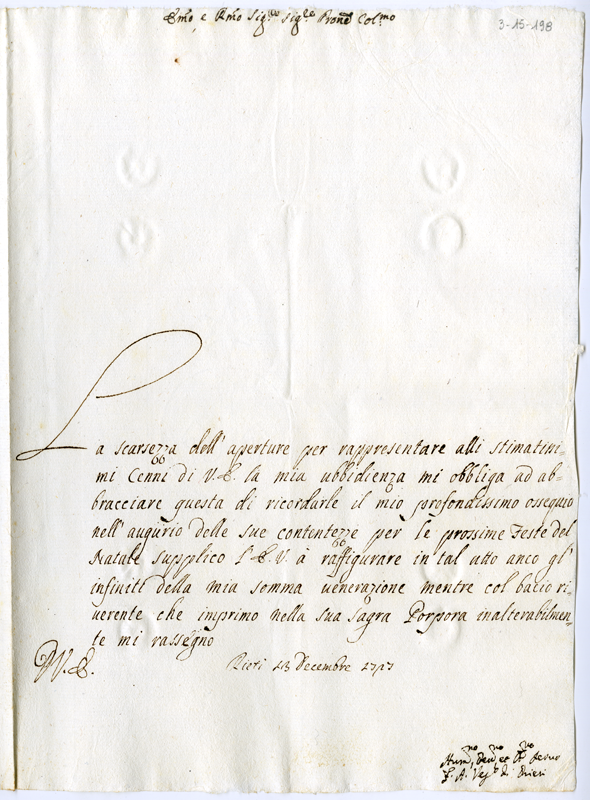 Em̃o e Rm̃o Sig.re Sig.re Pron̄e Col.mo
3-15-198
La scarsezza dell'aperture per rappresentare alli stimatissi-
mi Cenni di V.E. la mia ubbidienza mi obbliga ad ab-
bracciare questa di ricordarle il mio profondissimo ossequio
nell'augurio delle sue contentezze per le prossime Feste del
Natale supplico l'E.V. à raffigurare in tal atto anco gl'
infiniti della mia somma venerazione mentre col bacio ri-
verente che imprimo nella sua sagra Porpora inalterabilmen-
te mi rassegno
D V.E.
Rieti 13 Decembre
Hum.no, Dev.no et